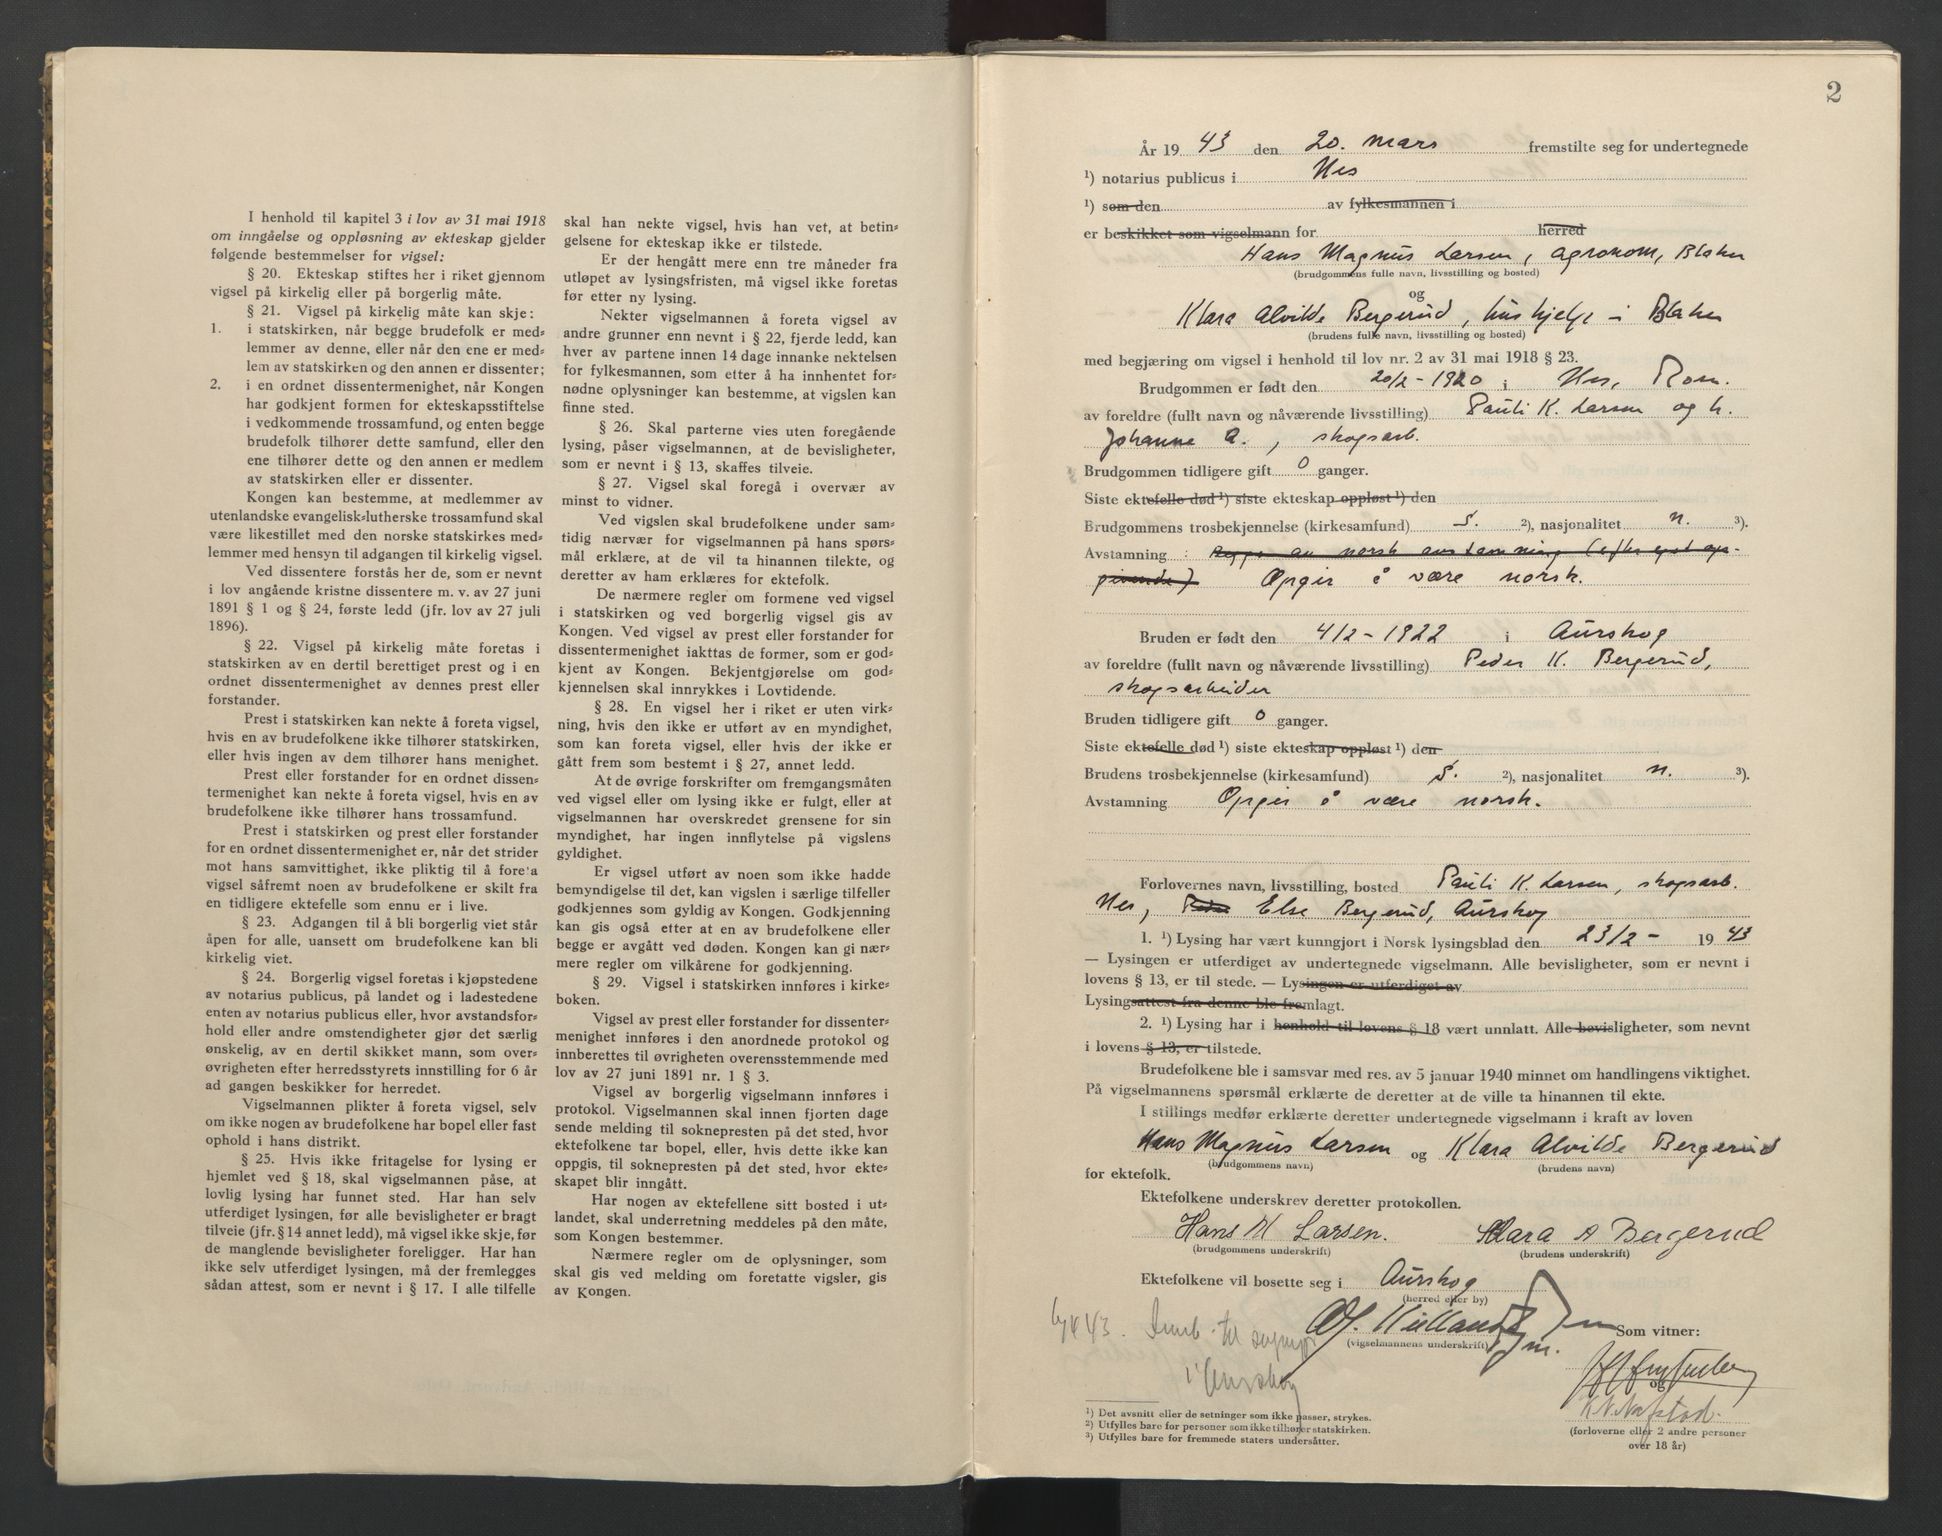 I henhold til kapitel 3 i lov av 31 mai 1918
om inngåelse og oppløsning av ekteskap gjelder
følgende bestemmelser for vigsel:
§ 20. Ekteskap stiftes her i riket gjennom
vigsel på kirkelig eller på borgerlig måte.
§ 21. Vigsel på kirkelig måte kan skje:
1. i statskirken, når begge brudefolk er med-
lemmer av denne, eller når den ene er med-
lem av statskirken og den annen er dissenter;
2. i en ordnet dissentermenighet, når Kongen
har godkjent formen for ekteskapsstiftelse
i vedkommende trossamfund, og enten begge
brudefolk tilhører dette samfund, eller den
ene tilhører dette og den annen er medlem
av statskirken eller er dissenter.
Kongen kan bestemme, at medlemmer av
utenlandske evangelisk-lutherske trossamfund skal
være likestillet med den norske statskirkes med-
lemmer med hensyn til adgangen til kirkelig vigsel.
Ved dissentere forstås her de, som er nevnt
i lov angående kristne dissentere m. v. av 27 juni
1891 § 1 og § 24, første ledd (jfr. lov av 27 juli
1896).
§ 22. Vigsel på kirkelig måte foretas i
statskirken av en dertil berettiget prest og i en
ordnet dissentermenighet av dennes prest eller
forstander.
Prest i statskirken kan nekte å foreta vigsel,
hvis en av brudefolkene ikke tilhører statskirken,
eller hvis ingen av dem tilhører hans menighet.
Prest eller forstander for en ordnet dissen-
termenighet kan nekte å foreta vigsel, hvis en av
brudefolkene ikke tilhører hans trossamfund.
Prest i statskirken og prest eller forstander
for en ordnet dissentermenighet er, når det strider
mot hans samvittighet, ikke pliktig til å fore'a
vigsel såfremt noen av brudefolkene er skilt fra
en tidligere ektefelle som ennu er i live.
§ 23. Adgangen til å bli borgerlig viet står
åpen for alle, uansett om brudefolkene kan bli
kirkelig viet.
§ 24. Borgerlig vigsel foretas i kjøpstedene
av notarius publicus, på landet og i ladestedene
enten av notarius publicus eller, hvor avstandsfor-
hold eller andre omstendigheter gjør det særlig
ønskelig, av en dertil skikket mann, som over-
øvrigheten efter herredsstyrets innstilling for 6 år
ad gangen beskikker for herredet.
Vigselmannen plikter å foreta vigsel, selv
om ikke nogen av brudefolkene har bopel eller fast
ophold i hans distrikt.
§ 25. Hvis ikke fritagelse for lysing er
hjemlet ved § 18, skal vigselmannen påse, at
lovlig lysing har funnet sted. Har han selv
utferdiget lysingen, før alle bevisligheter er bragt
tilveie (jfr. § 14 annet ledd), må vigsel ikke skje, før
de manglende bevisligheter foreligger. Har han
ikke selv utferdiget lysingen, må der fremlegges
sådan attest, som er nevnt i § 17. I alle tilfelle
skal han nekte vigsel, hvis han vet, at betin-
gelsene for ekteskap ikke er tilstede.
Er der hengått mere enn tre måneder fra
utløpet av lysingsfristen, må vigsel ikke foretas
før etter ny lysing.
Nekter vigselmannen å foreta vigsel av
andre grunner enn nevnt i § 22, fjerde ledd, kan
hver av partene innen 14 dage innanke nektelsen
for fylkesmannen, som etter å ha innhentet for-
nødne oplysninger kan bestemme, at vigslen kan
finne sted.
§ 26. Skal parterne vies uten foregående
lysing, påser vigselmannen, at de bevisligheter,
som er nevnt i § 13, skaffes tilveie.
§ 27. Vigsel skal foregå i overvær av
minst to vidner.
Ved vigslen skal brudefolkene under sam-
tidig nærvær for vigselmannen på hans spørs-
mål erklære, at de vil ta hinannen tilekte, og
deretter av ham erklæres for ektefolk.
De nærmere regler om formene ved vigsel
i statskirken og ved borgerlig vigsel gis av
Kongen. Ved vigsel av prest eller forstander for
dissentermenighet iakttas de former, som er god-
kjent av Kongen. Bekjentgjørelse om god-
kjennelsen skal innrykkes i Lovtidende.
§ 28. En vigsel her i riket er uten virk-
ning, hvis den ikke er utført av en myndighet,
som kan foreta vigsel, eller hvis der ikke er
gått frem som bestemt i § 27, annet ledd.
At de øvrige forskrifter om fremgangsmåten
ved vigsel eller om lysing ikke er fulgt, eller at
vigselmannen har overskredet grensene for sin
myndighet, har ingen innflytelse på vigslens
gyldighet.
Er vigsel utført av noen som ikke hadde
bemyndigelse til det, kan vigslen i særlige tilfeller
godkjennes som gyldig av Kongen. Godkjenning
kan gis også etter at en av brudefolkene eller
begge er avgått ved døden. Kongen kan gi nær-
mere regler om vilkårene for godkjenning.
§ 29. Vigsel i statskirken innføres i kirke-
boken.
Vigsel av prest eller forstander for dissenter-
menighet innføres i den anordnede protokol og
innberettes til øvrigheten overensstemmende med
lov av 27 juni 1891 nr. 1 § 3.
Vigsel av borgerlig vigselmann innføres i
protokol. Vigselmannen skal innen fjorten dage
sende melding til soknepresten på det sted, hvor
ektefolkene tar bopel, eller, hvis dette ikke kan
oppgis, til soknepresten på det sted, hvor ekte-
skapet blir inngått.
Har nogen av ektefellene sitt bosted i ut-
landet, skal underretning meddeles på den måte,
som Kongen bestemmer.
Nærmere regler om de oplysninger, som
skal gis ved melding om foretatte vigsler, gis
av Kongen.
2
År 19 43 den 20. mars fremstilte seg for undertegnede
1) notarius publicus i Nes
1) som den av fylkesmannen i
er beskikket som vigselmann for herred
Hans Magnus Larsen, agronom, Blaker
(brudgommens fulle navn, livsstilling og bosted)
og
Klara Alvilde Bergerud, hushjelp i Blaker
(brudens fulle navn, livsstilling og bosted)
med begjæring om vigsel i henhold til lov nr. 2 av 31 mai 1918 § 23.
Brudgommen er født den 20/2 - 1920 i Nes, Rom.
av foreldre (fullt navn og nåværende livsstilling) Pauli K. Larsen og h.
Johanne A., skogsarb.
Brudgommen tidligere gift 0 ganger.
Siste ektefelle død 1) siste ekteskap oppløst 1) den
Brudgommens trosbekjennelse (kirkesamfund) S. 2), nasjonalitet n. 3).
Avstamning : Begge av norsk avstamning (efter eget op-
givende) Opgir å være norsk.
Bruden er født den 4/2 - 1922 i Aurskog
av foreldre (fullt navn og nåværende livsstilling) Peder K. Bergerud,
skogsarbeider
Bruden tidligere gift 0 ganger.
Siste ektefelle død 1) siste ekteskap oppløst 1) den
Brudens trosbekjennelse (kirkesamfund) S. 2), nasjonalitet n. 3).
Avstamning Opgir å være norsk.
Forlovernes navn, livsstilling, bosted Pauli K. Larsen, skogsarb.
Nes, Peder Else Bergerud, Aurskog
1. 1) Lysing har vært kunngjort i Norsk lysingsblad den 23/2 - 19 43
— Lysingen er utferdiget av undertegnede vigselmann. Alle bevisligheter, som er nevnt i
lovens § 13, er til stede. — Lysingen er utferdiget av
Lysingsattest fra denne ble fremlagt.
2. 1) Lysing har i henhold til lovens § 18 vært unnlatt. Alle bevisligheter, som nevnt
i lovens § 13, er tilstede.
Brudefolkene ble i samsvar med res. av 5 januar 1940 minnet om handlingens viktighet.
På vigselmannens spørsmål erklærte de deretter at de ville ta hinannen til ekte.
I stillings medfør erklærte deretter undertegnede vigselmann i kraft av loven
Hans Magnus Larsen og Klara Alvilde Bergerud
(brudgommens navn) (brudens navn)
for ektefolk.
Ektefolkene underskrev deretter protokollen.
Hans M Larsen. Klara A Bergerud
(brudgommens underskrift) (brudens underskrift)
Ektefolkene vil bosette seg i Aurskog
(herred eller by)
Som vitner:
(vigselmannens underskrift)
43. Innb. til sognepr
i Aurskog
og
(forloverne eller 2 andre personer
over 18 år)
1) Det avsnitt eller de setninger som ikke passer, strykes.
2) Utfylles bare for personer som ikke tilhører statskirken.
3) Utfylles bare for fremmede staters undersåtter.